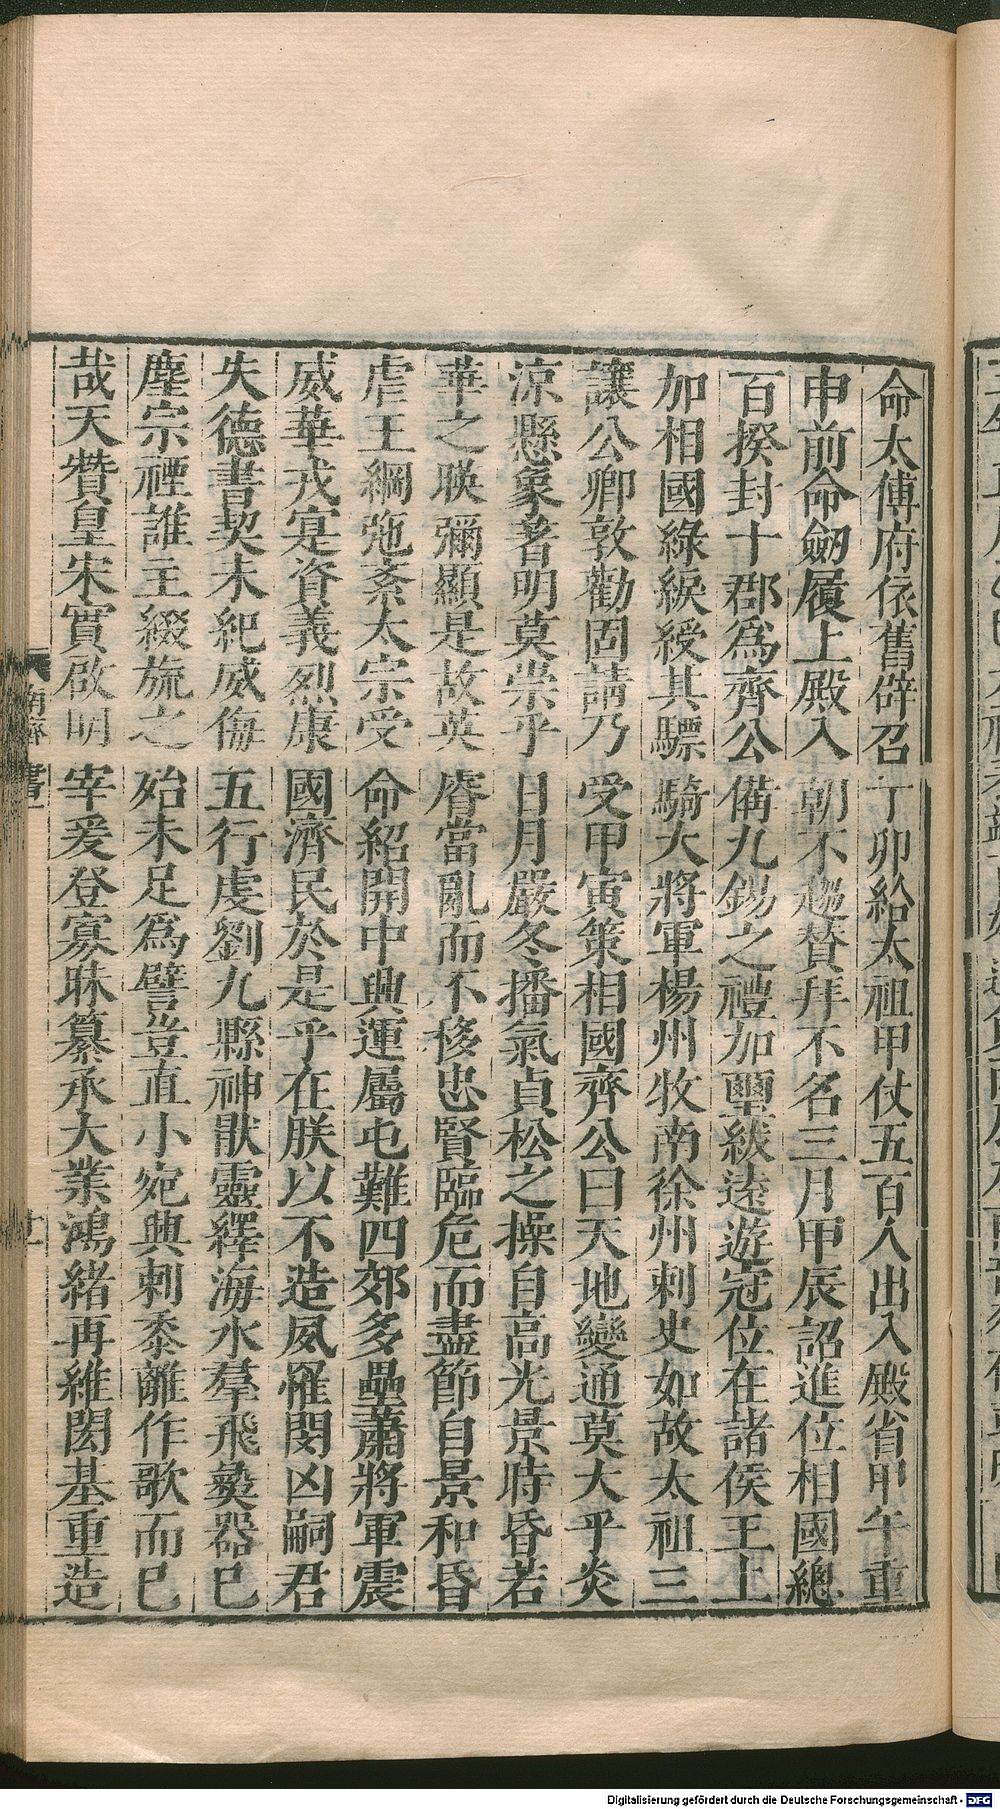 命太傅府依舊辟召丁卯給太祖甲仗五百人出入殿省甲午重
申前命劒履上殿入朝不趨贊拜不名三月甲辰詔進位相國總
百揆封十郡爲齊公備九錫之禮加璽紱遠遊冠位在諸侯王上
加相國綠綟綬其驃騎大將軍楊州牧南徐州刺史如故太祖三
讓公卿敦勸固請乃受甲寅策相國齊公曰天地變通莫大乎炎
涼懸象著明莫崇乎日月嚴冬播氣貞松之操自高光景時昏若
華之暎彌顯是故英睿當亂而不移忠賢臨危而盡節自景和昏
虐王綱弛紊太宗受命紹開中興運屬屯難四郊多壘蕭將軍震
威華戎寔資義烈康國濟民於是乎在朕以不造夙罹閔凶嗣君
失德書契未紀威侮五行虔劉九縣神歇靈繹海水羣飛彝器已
塵宗禋誰主綴旒之殆未足爲譬豈直小宛興刺黍離作歌而已
哉天贊皇宋實啟明宰爰登寡昧纂承大業鴻緒再維閎基重造
南齊書一
Digitalisierung gefördert durch die Deutsche Forschungsgemeinschaft - DFG